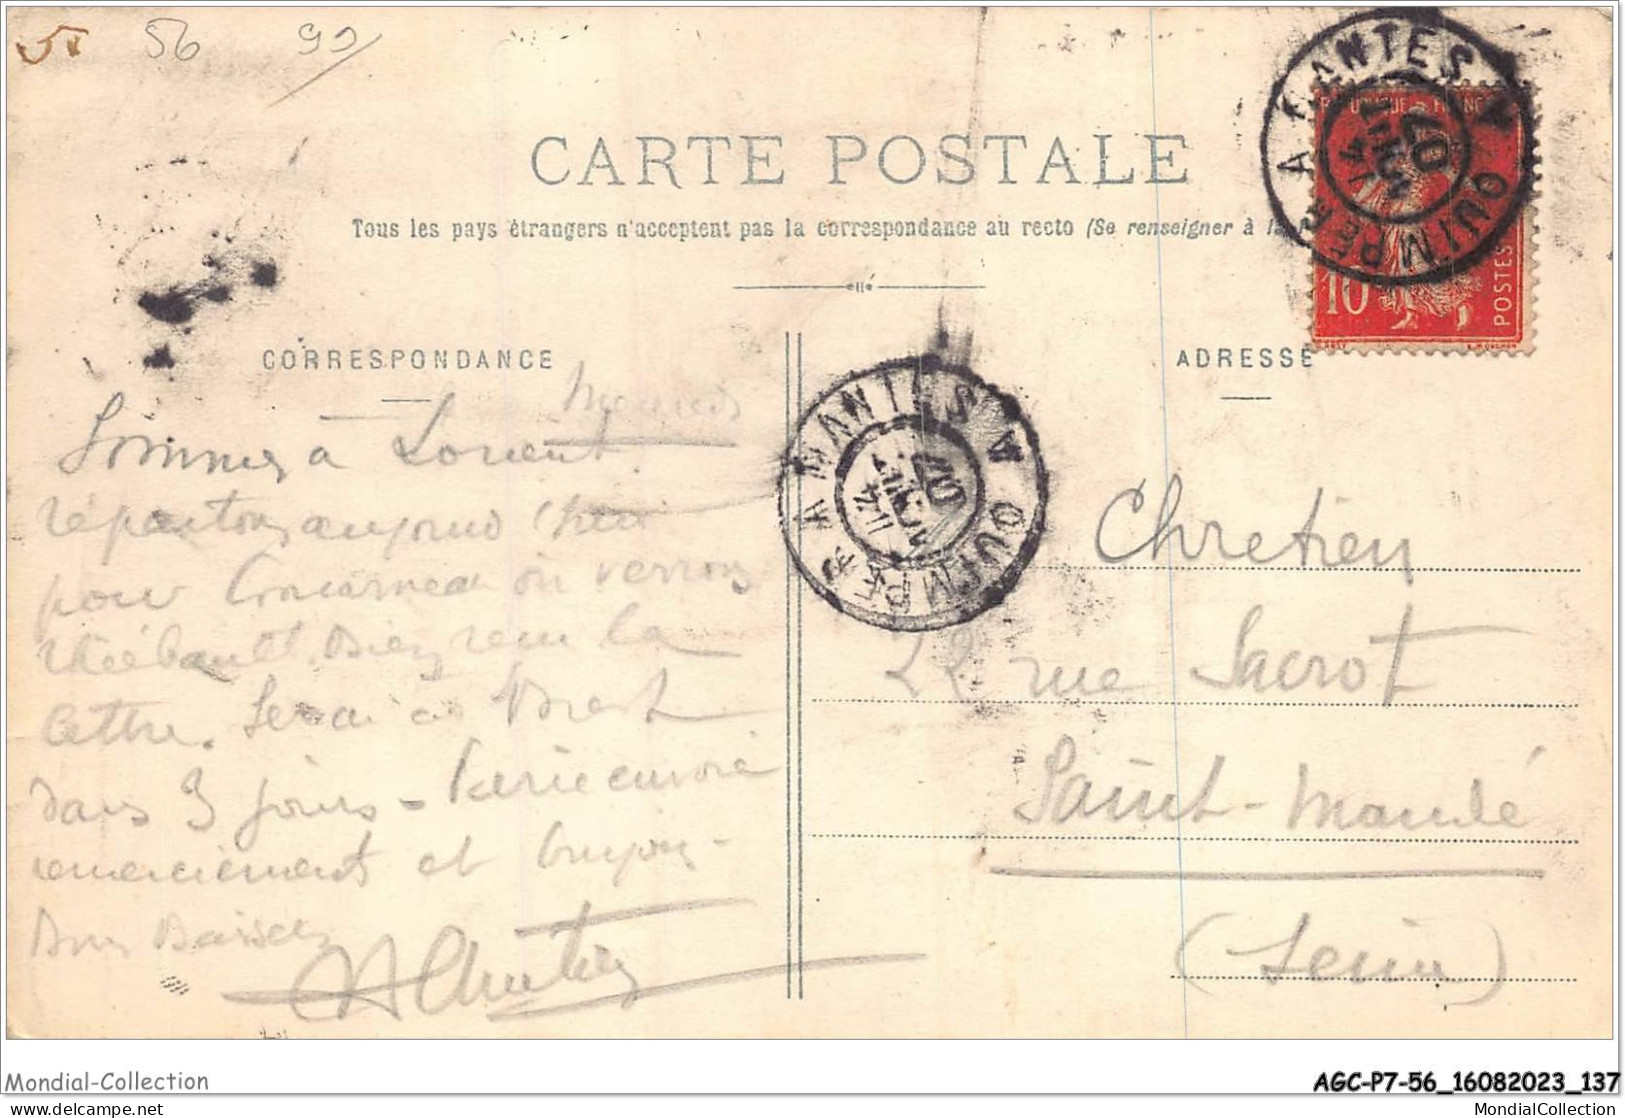 56
CARTE POSTALE
Tous les pays étrangers n'acceptent pas la correspondance au recto (Se renseigner à la
NANTES A QUIMPER
07
REPUBLIQUE FRANC
10
POSTES
CORRESPONDANCE
ADRESSE
NANTES A QUIMPER
07
Sommes à Lorient.
répartons aujourd'hui
pour Concarneau où verrons
Thiébault. Bien reçu la
lettre. Serai à Brest
dans 3 jours -
remerciements et
Bons Baisers
Chretien
22 rue Sacrot
Saint-Mandé
(Seine)
Mondial-Collection
AGC-P7-56_16082023_137
© MondialCollection.fr
MondialCollection